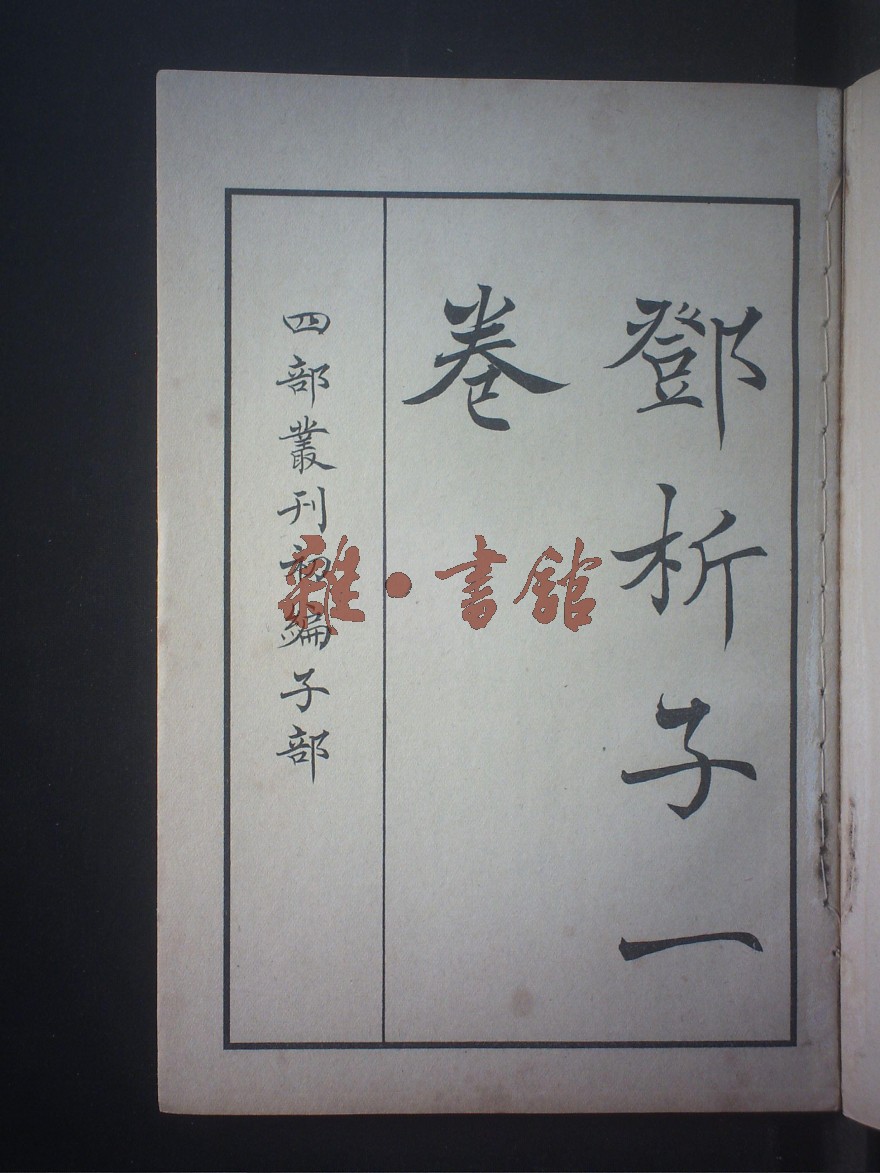 鄧析子一
卷
四部叢刊初編子部
雜·書館